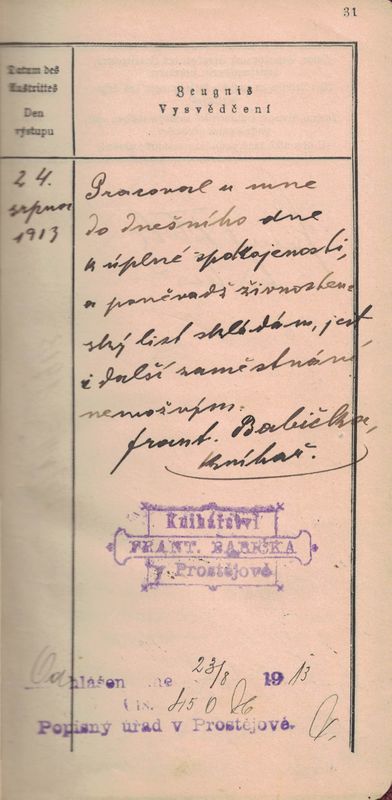 31
Datum des
Austrittes
Den
výstupu
Zeugnis
Vysvědčení
24.
srpna
1913
Pracoval u mne
do dnešního dne
k úplné spokojenosti,
a poněvadž živnosten-
ský list skládám, jest
i další zaměstnání
nemožným.
Frant. Babička,
knihař.
Knihařství
FRANT. BABIČKA
v Prostějově
Odhlášen dne 23/8 1913
Čís. 450
Popisný úřad v Prostějově.